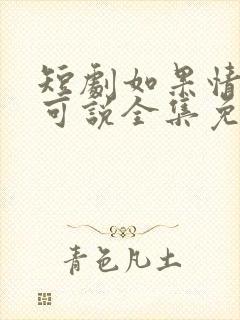 短劇如果情
可說全集免
青色凡土